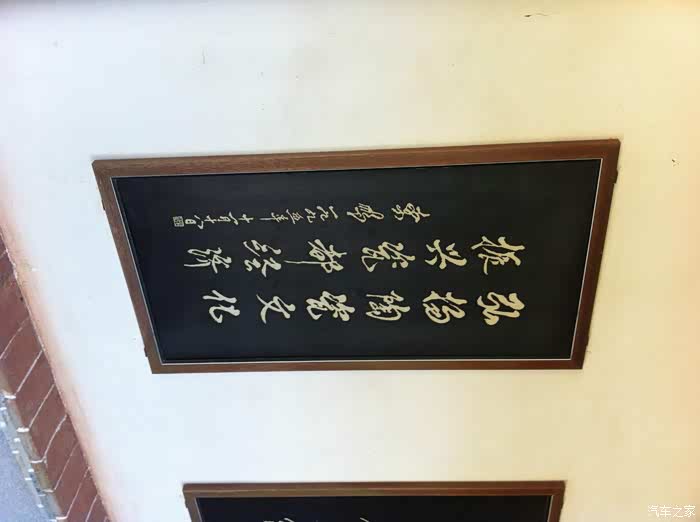 弘扬陶瓷文化
振兴瓷都经济
一九九五年十一月十八日
汽车之家